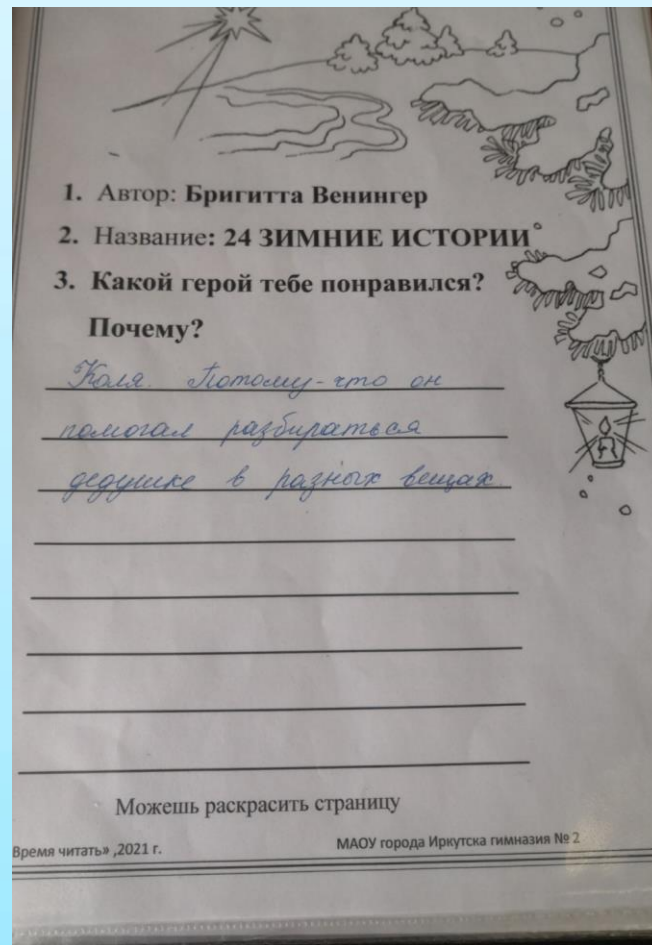 1. Автор: Бригитта Венингер
2. Название: 24 ЗИМНИЕ ИСТОРИИ
3. Какой герой тебе понравился?
Почему?
Коля. Потому-что он
помогал разбираться
дедушке в разных вещах.
Можешь раскрасить страницу
Время читать» ,2021 г. МАОУ города Иркутска гимназия № 2